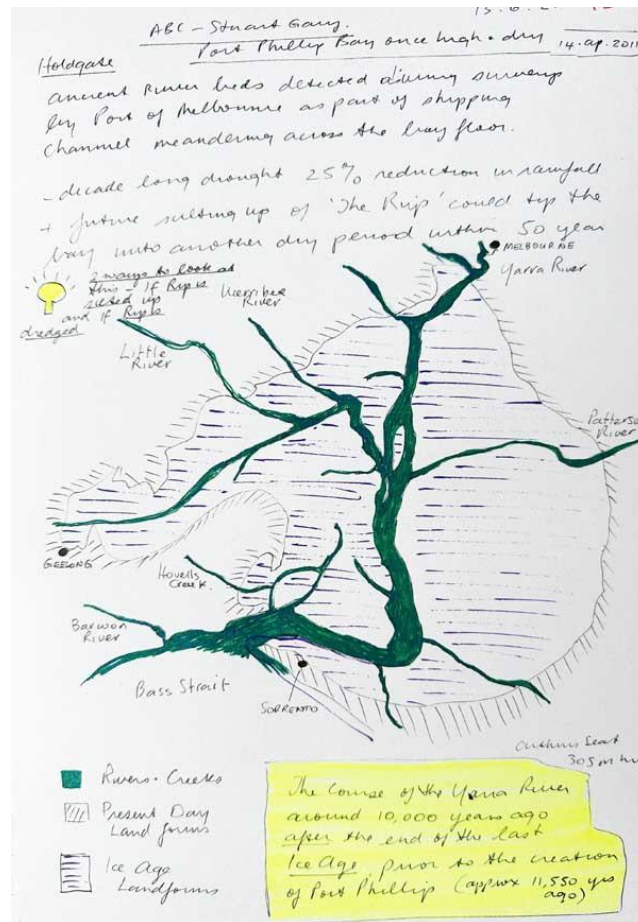 ABC - Stuart Gary.
Port Phillip Bay once high + dry 14.ap.2011
Holdgate
ancient River beds detected during surveys
by Port of Melbourne as part of shipping
channel meandering across the bay floor.
- decade long drought 25% reduction in rainfall
+ future silting up of 'The Rip' could tip the
bay into another dry period within 50 year
2 ways to look at
this - if Rip is
silted up
and if Rip is
dredged
MELBOURNE
Yarra River
Werribee
River
Little
River
Patterso
River
GEELONG
Hovells
Creek.
Barwon
River
Bass Strait
SORRENTO
Arthurs Seat
305 m
Rivers + Creeks
Present Day
Land forms
Ice Age
Landforms
The Course of the Yarra River
around 10,000 years ago
after the end of the last
Ice Age, prior to the creation
of Port Phillip (approx 11,550 yrs
ago)